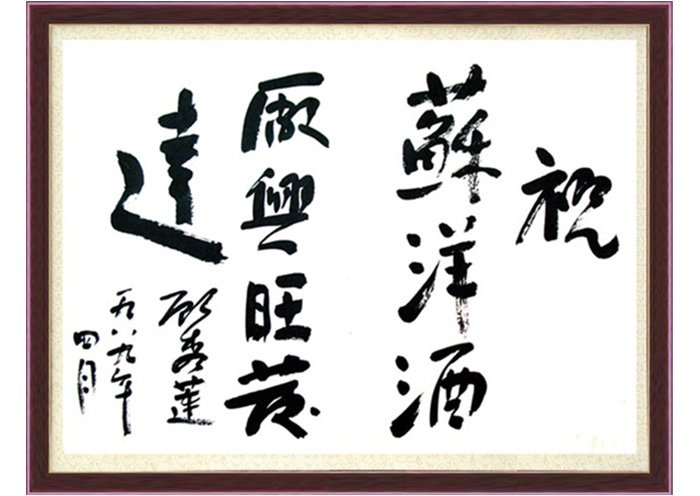 祝
蘇洋酒
厰興旺发
達
顾秀蓮
一九八九年
四月